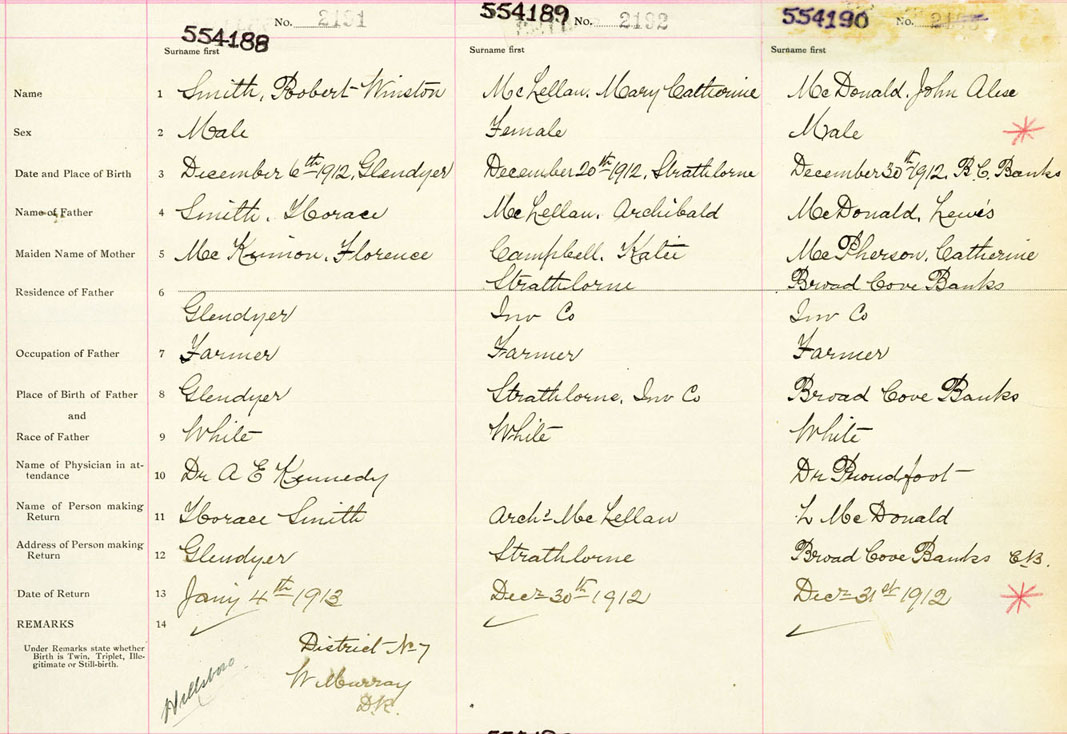 554188 No. 2191 554189 No. 2192 554190 No.
Surname first Surname first Surname first
Name 1 Smith, Robert Winston McLellan, Mary Catherine McDonald, John Alise
Sex 2 Male Female Male
Date and Place of Birth 3 December 6th 1912, Glendyer December 20th 1912, Strathlorne December 30th 1912, B.C. Banks
Name of Father 4 Smith, Horace McLellan, Archibald McDonald, Lewis
Maiden Name of Mother 5 McKinnon, Florence Campbell, Katie McPherson, Catherine
Residence of Father 6 Strathlorne Broad Cove Banks
Glendyer Inv Co Inv Co
Occupation of Father 7 Farmer Farmer Farmer
Place of Birth of Father 8 Glendyer Strathlorne, Inv Co Broad Cove Banks
and
Race of Father 9 White White White
Name of Physician in at-
tendance 10 Dr A E Kennedy Dr Proudfoot
Name of Person making
Return 11 Horace Smith Archd McLellan L McDonald
Address of Person making
Return 12 Glendyer Strathlorne Broad Cove Banks C.B.
Date of Return 13 Jany 4th 1913 Decr 30th 1912 Decr 31st 1912
REMARKS 14
Under Remarks state whether
Birth is Twin, Triplet, Ille-
gitimate or Still-birth.
District No 7
Hillsboro
W Murray
D.R.